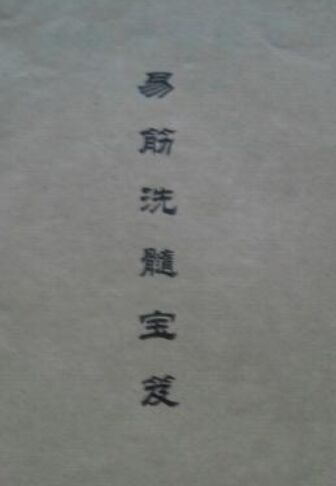 易筋洗髓宝笈